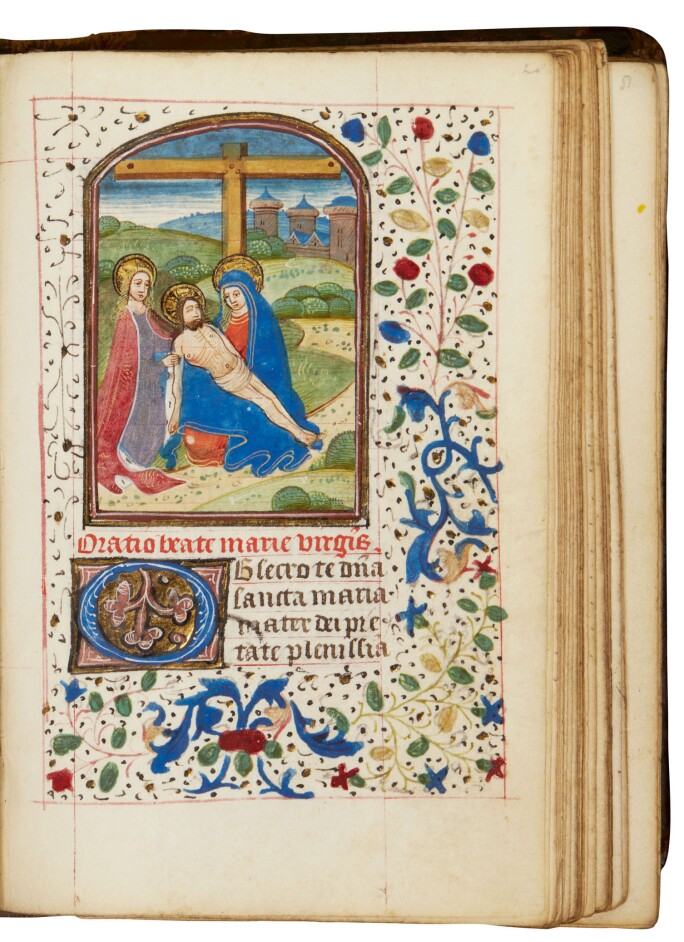 Oratio beate marie virgīs.
O
B secro te dña
sancta maria
mater dei pie
tate plenissīa
51